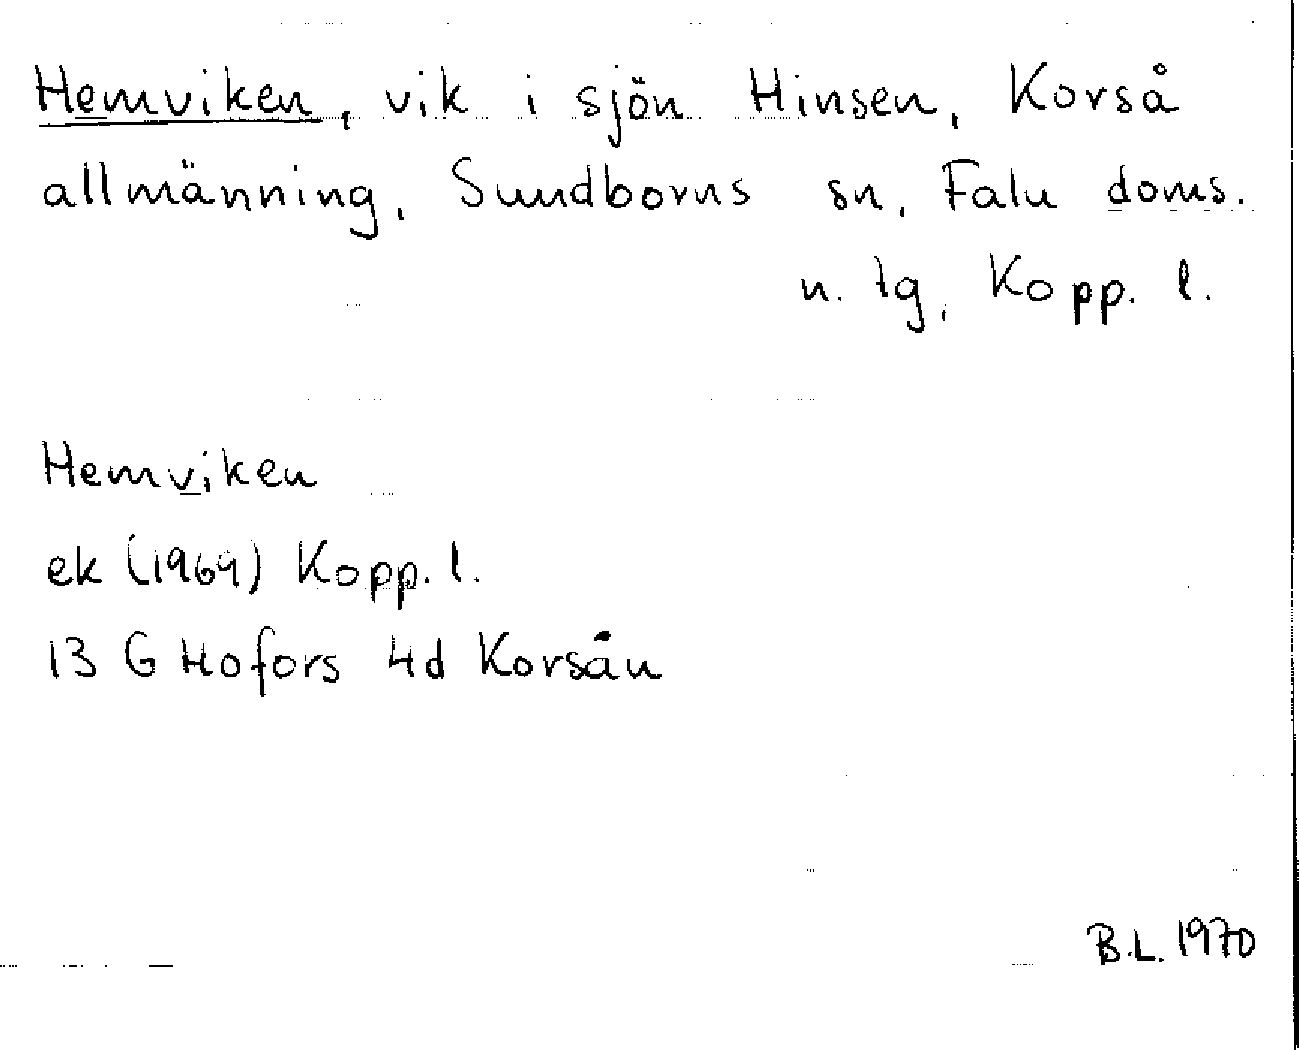 Hemviken, vik i sjön Hinsen, Korså
allmänning, Sundborns sn, Falu doms.
n. tg, Kopp. l.
Hemviken
ek (1969) Kopp. l.
13 G Hofors 4d Korsån
B.L. 1970